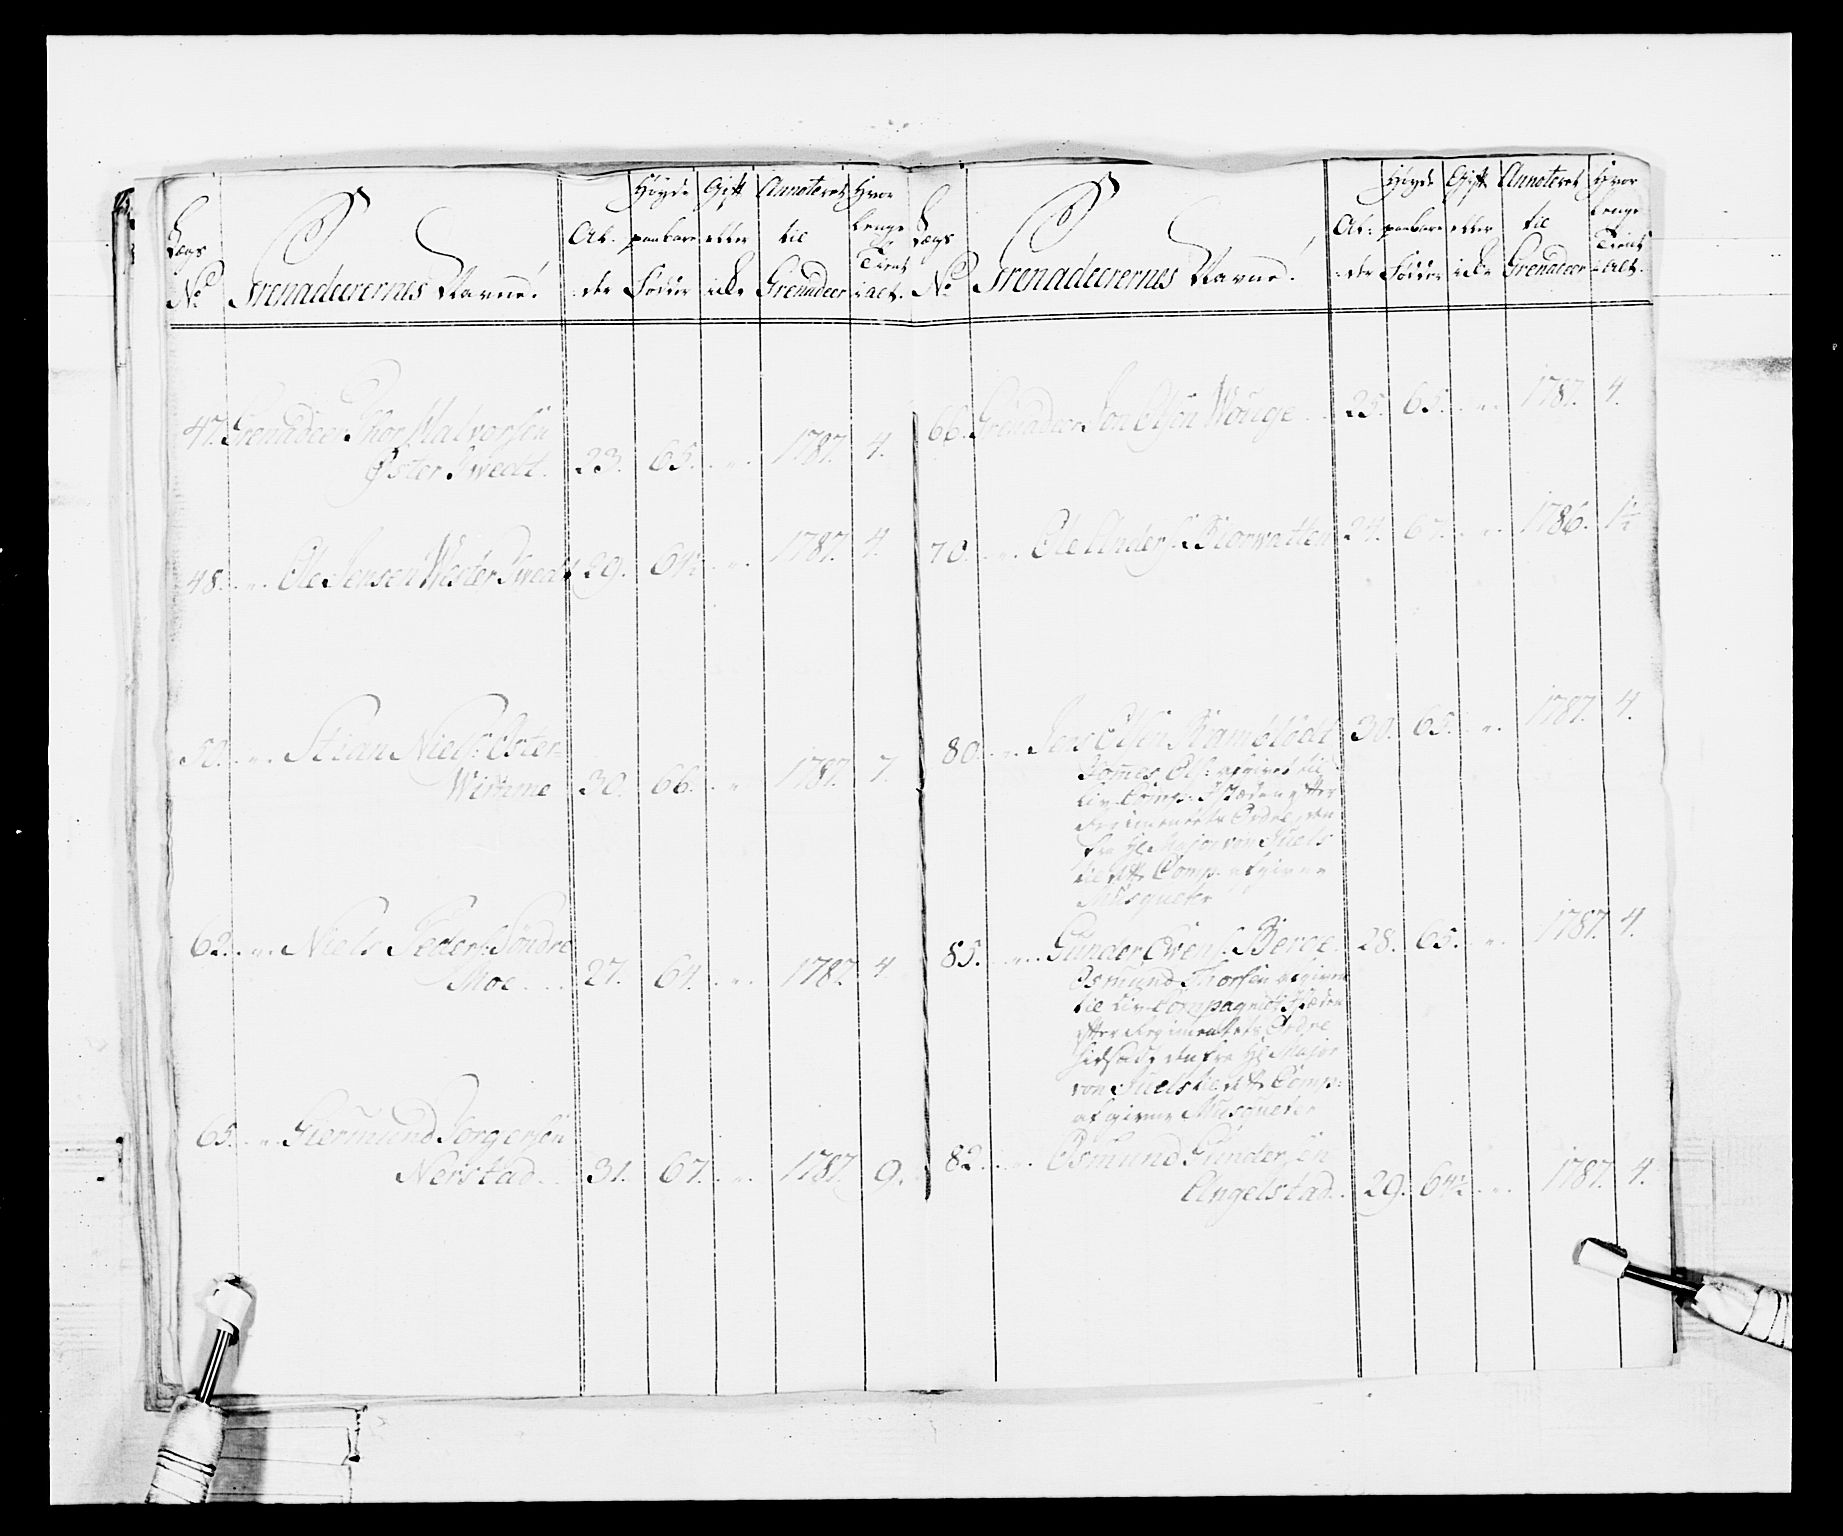 Lægs No
Grenadeerernes Navne!
Al-
der
Høyde
paa bare
Føder
Gift
eller
icke
Annoteret
til
Grenadeer
Hvor
lenge
Tient
i alt.
47. Grenadeer Thor Halvorsen
Øster Twedt. 23. 65. " 1787. 4.
48. " Ole Jensen Wester Twedt 29. 64½ " 1787. 4.
50. " Stian Niels: Øster
Wimme 30. 66. " 1787. 7.
62. " Niels Peders: Søndre
Moe 27. 64. " 1787. 4
65. " Giermund Torgersen
Nerstad 31. 67. " 1787. 9.
Lægs No
Grenadeerernes Navne!
Al-
der
Høyde
paa bare
Føder
Gift
eller
icke
Annoteret
til
Grenadeer
Hvor
lenge
Tient
i alt.
66. Grenadeer Jon Olsen Houge 25. 65. " 1787. 4.
70. " Ole Anders: Biorvatten 24. 67. " 1786. 1½
80. " Jens Olsen 30. 65. " 1787. 4.
Ols: afgived til
Liv Comp: I Stæden efter
Regimentets Ordre, den
fra Hr Major von Juels
til dette Comp: afgivne
Musqueter
85. " Gunder Evens: Berge. 28. 65. " 1787. 4.
Osmund Thorsen afgiven
til Liv Compagniet I Stæden
efter Regimentets Ordre
den fra Hr Major
von Juels til dette Comp:
afgivne Musqueter
82. " Osmund Gundersen
Angelstad. 29. 64½ " 1787. 4.